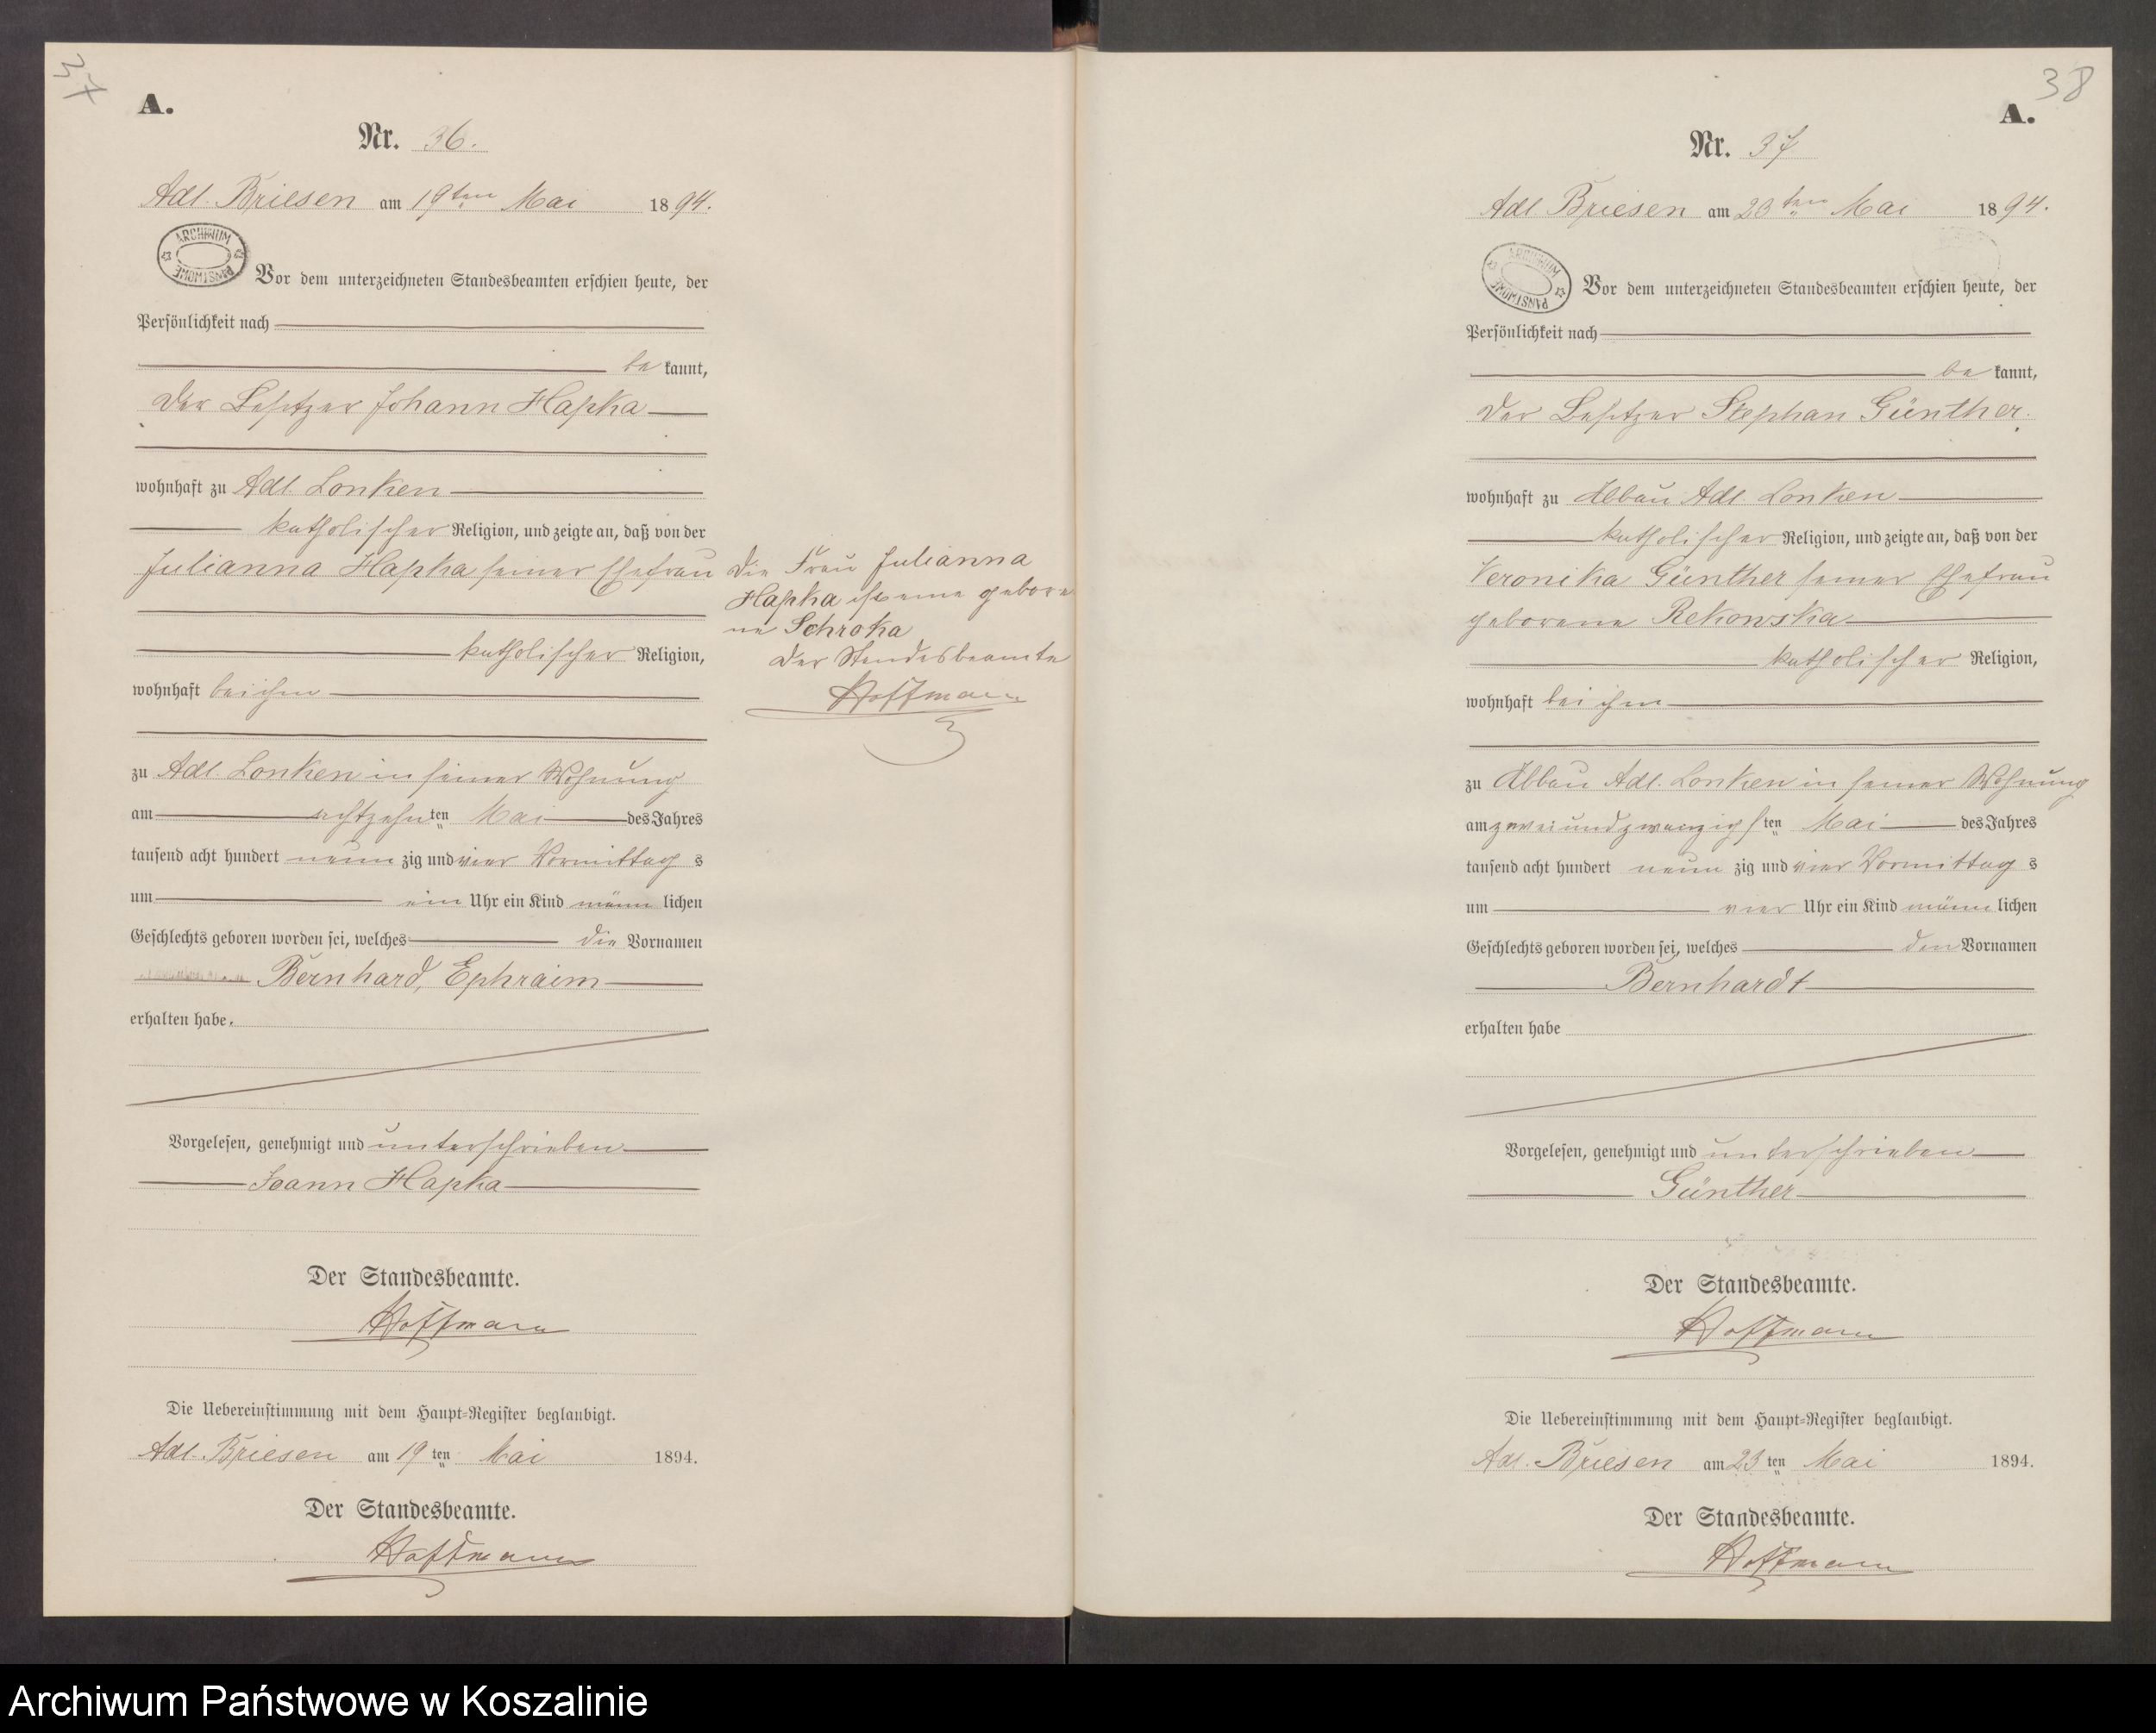 37
A.
Nr. 36.
Adl. Briesen am 19ten Mai 1894.
ARCHIWUM PAŃSTWOWE
Vor dem unterzeichneten Standesbeamten erschien heute, der
Persönlichkeit nach
be kannt,
der Besitzer Johann Hapka
wohnhaft zu Adl. Lonken
katholischer Religion, und zeigte an, daß von der
Julianna Hapka seiner Ehefrau
katholischer Religion,
wohnhaft bei ihm
zu Adl. Lonken in seiner Wohnung
am achtzehnten Mai des Jahres
tausend acht hundert neunzig und vier Vormittags
um ein Uhr ein Kind männlichen
Geschlechts geboren worden sei, welches die Vornamen
Bernhard, Ephraim
erhalten habe.
Vorgelesen, genehmigt und unterschrieben
Joann Hapka
Der Standesbeamte.
Hoffmann
Die Uebereinstimmung mit dem Haupt-Register beglaubigt.
Adl. Briesen am 19ten Mai 1894.
Der Standesbeamte.
Hoffmann
Die Frau Julianna
Hapka ist eine gebore
ne Schroka
Der Standesbeamte
Hoffmann
38
A.
Nr. 37
Adl Briesen am 23ten Mai 1894.
ARCHIWUM PAŃSTWOWE
Vor dem unterzeichneten Standesbeamten erschien heute, der
Persönlichkeit nach
be kannt,
der Besitzer Stephan Günther
wohnhaft zu Abbau Adl. Lonken
katholischer Religion, und zeigte an, daß von der
Veronika Günther seiner Ehefrau
geborene Rekowska
katholischer Religion,
wohnhaft bei ihm
zu Abbau Adl. Lonken in seiner Wohnung
am zweiundzwanzigsten Mai des Jahres
tausend acht hundert neunzig und vier Vormittags
um vier Uhr ein Kind männlichen
Geschlechts geboren worden sei, welches den Vornamen
Bernhardt
erhalten habe
Vorgelesen, genehmigt und unterschrieben
Günther
Der Standesbeamte.
Hoffmann
Die Uebereinstimmung mit dem Haupt-Register beglaubigt.
Adl. Briesen am 23ten Mai 1894.
Der Standesbeamte.
Hoffmann
Archiwum Państwowe w Koszalinie